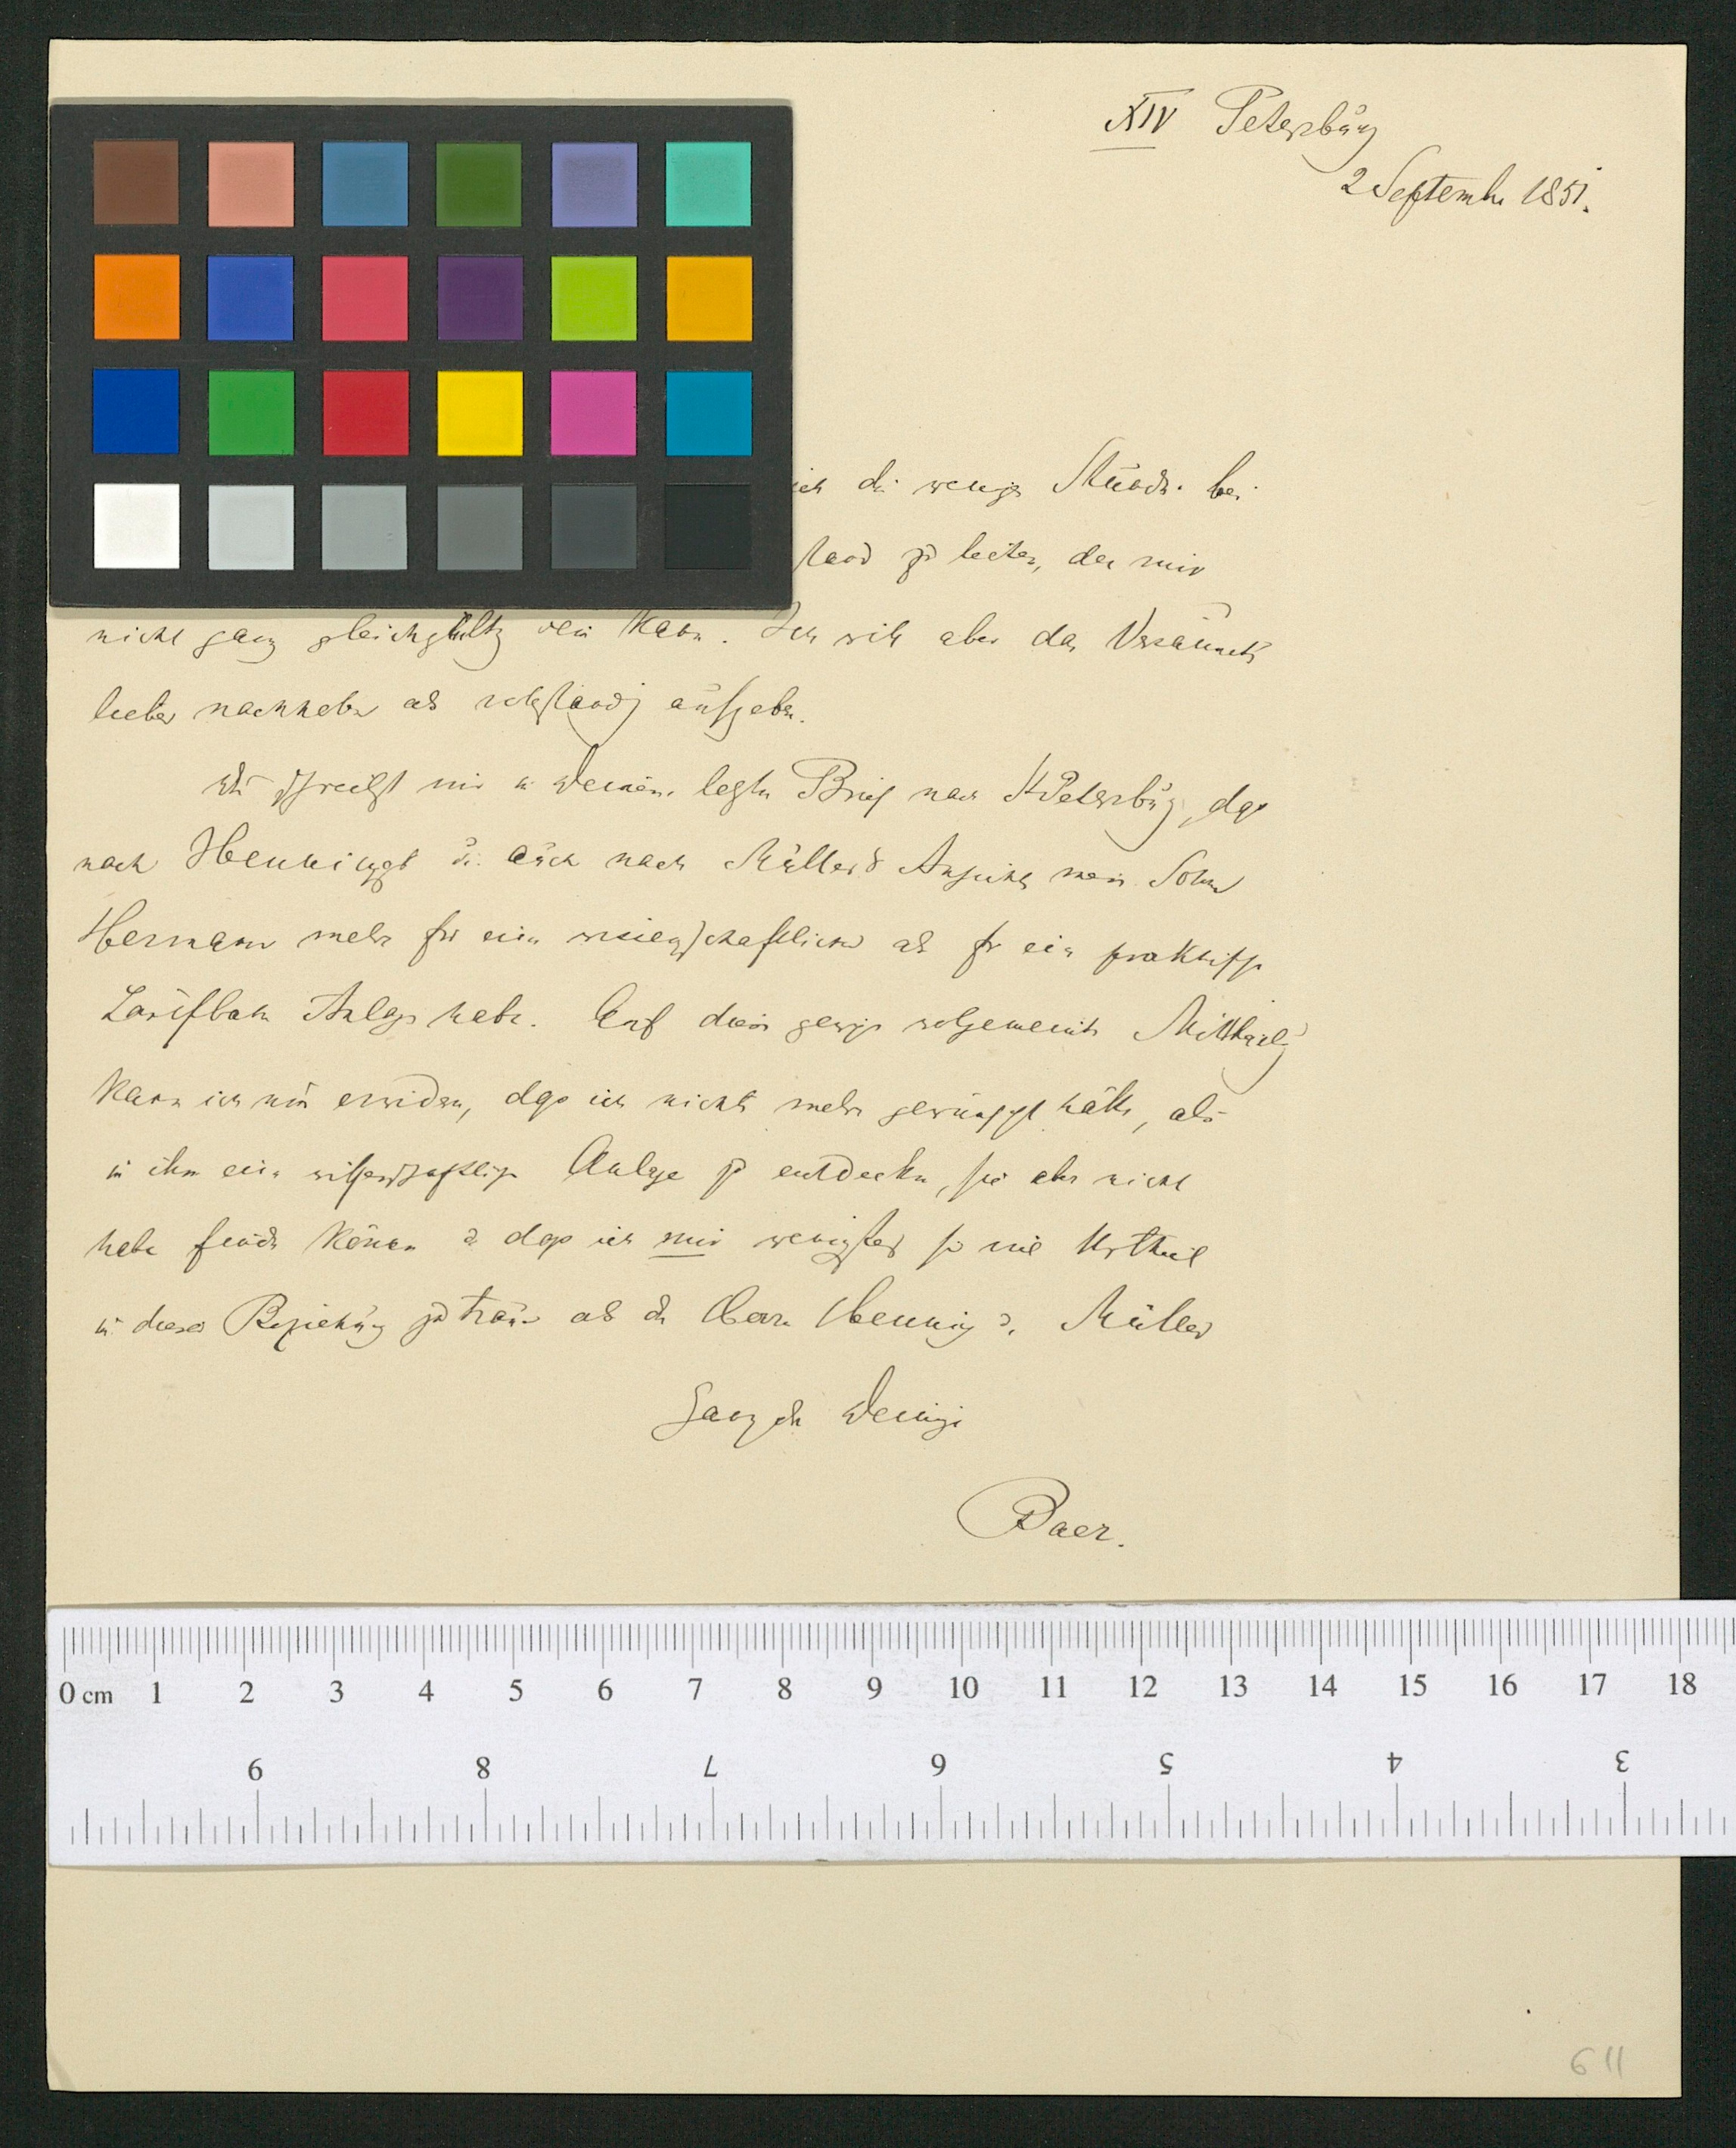 XIV Petersburg
2 Septembr 1851.
ich die wenigen Stunden bei
stand zu leiten, der mir
nicht ganz gleichgültig sein kann. Ich will aber das Versäumte
lieber nachholen als vollständig aufgeben.
Du schreibst mir in Deinem letzten Brief nach St Petersburg, daß
nach Hennings u. auch nach Müllers Ansicht mein Sohn
Hermann mehr für eine wissenschaftliche als für eine praktische
Laufbahn Anlage habe. Auf diese gewiß wolgemeinte Mittheilung
kann ich nur erwidern, daß ich nichts mehr gewünscht hätte, als
in ihm eine wissenschaftliche Anlage zu entdecken, sie aber nicht
habe finden können u daß ich mir wenigstens so viel Urtheil
in dieser Beziehung zu traue als den Herrn Henning u. Müller
Ganz der Deinige
Baer.
0 cm 1 2 3 4 5 6 7 8 9 10 11 12 13 14 15 16 17 18
9 8 7 6 5 4 3
611